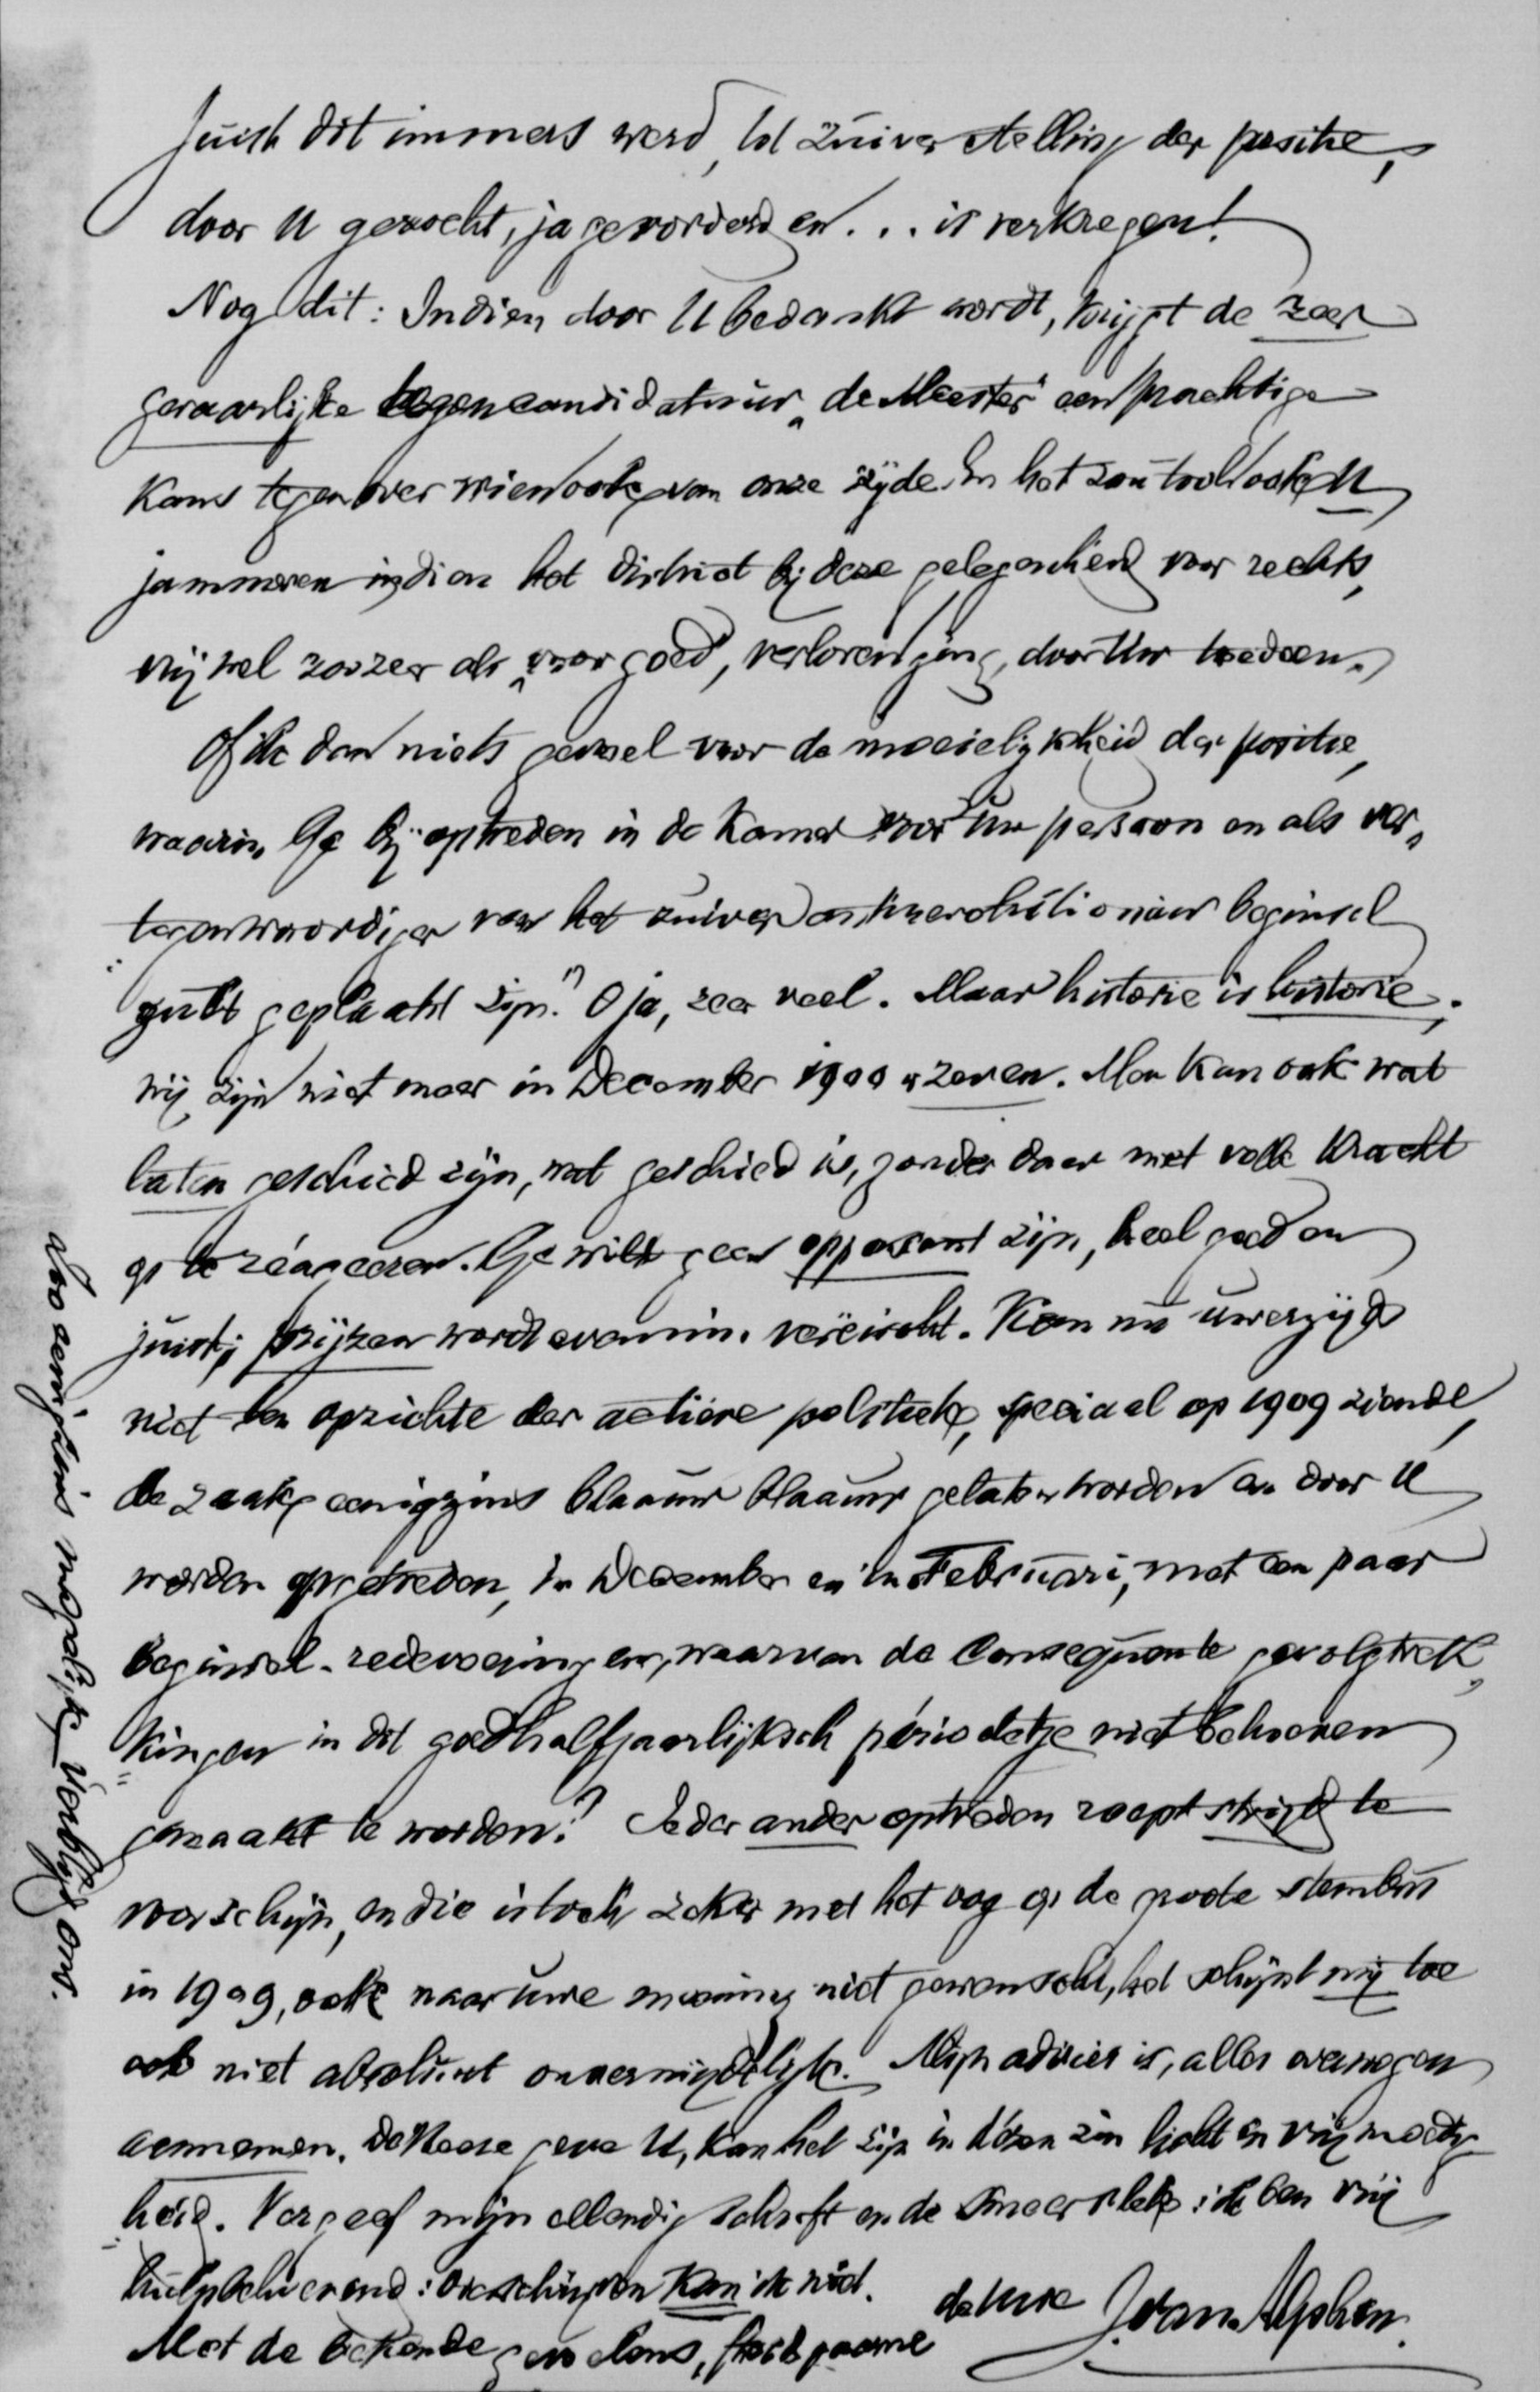 Juist dit immers werd, tot zuiver stelling der positie,
door U gezocht, ja gevorderd en... is verkregen!
Nog dit: Indien door U bedankt wordt, krijgt de zeer
gevaarlijke tegencandidatuur „de Meester" een prachtige
kans tegenover wien ook van onze zijde. En het zou toch ook U
jammeren indien het district bij deze gelegenheid voor rechts,
vrij wel zoozeer als „voor goed", verloren ging, door Uw toedoen.
Of ik dan niets gevoel voor de moeielijkheid der positie,
waarin Ge bij optreden in de Kamer voor Uw persoon en als ver„
tegenwoordiger van het zuiver antirevolutionair beginsel
zult geplaatst zijn? O ja, zeer veel. Maar historie is historie;
wij zijn niet meer in December 1900 & zeven. Men kan ook wat
laten geschied zijn, wat geschied is, zonder daar met volle kracht
op te réageeren. Ge wilt geen opposant zijn, heel goed en
juist; prijzen wordt evenmin vereischt. Kan nu uwerzijds
niet ten opzichte der actieve politiek, speciaal op 1909 ziende,
de zaak eenigzins blaauw blaauw gelaten worden en door U
worden opgetreden, in December en in Februari, met een paar
beginsel-redevoeringen, waarvan de consequente gevolgtrek„
kingen in dit goed halfjaarlijksch périodetje niet behoeven
gemaakt te worden? Ieder ander optreden roept strijd te
voorschijn, en die is toch zeker met het oog op de groote stembus
in 1909, ook naar uwe meening niet gewenscht, het schijnt mij toe
ook niet absoluut onvermijdelijk. Mijn advies is, alles overwogen
aannemen. De Heere geve U, kan het zijn in dézen zin licht en vrijmoedig
heid. Vergeef mijn ellendig schrift en de smeervlek: ik ben vrij
hulpbehoevend: overschrijven kan ik niet.
Met de bekende gevoelens, gaarne
de Uwe J. van Alphen.
Zoo eenigzins mogelijk verblijd ons.